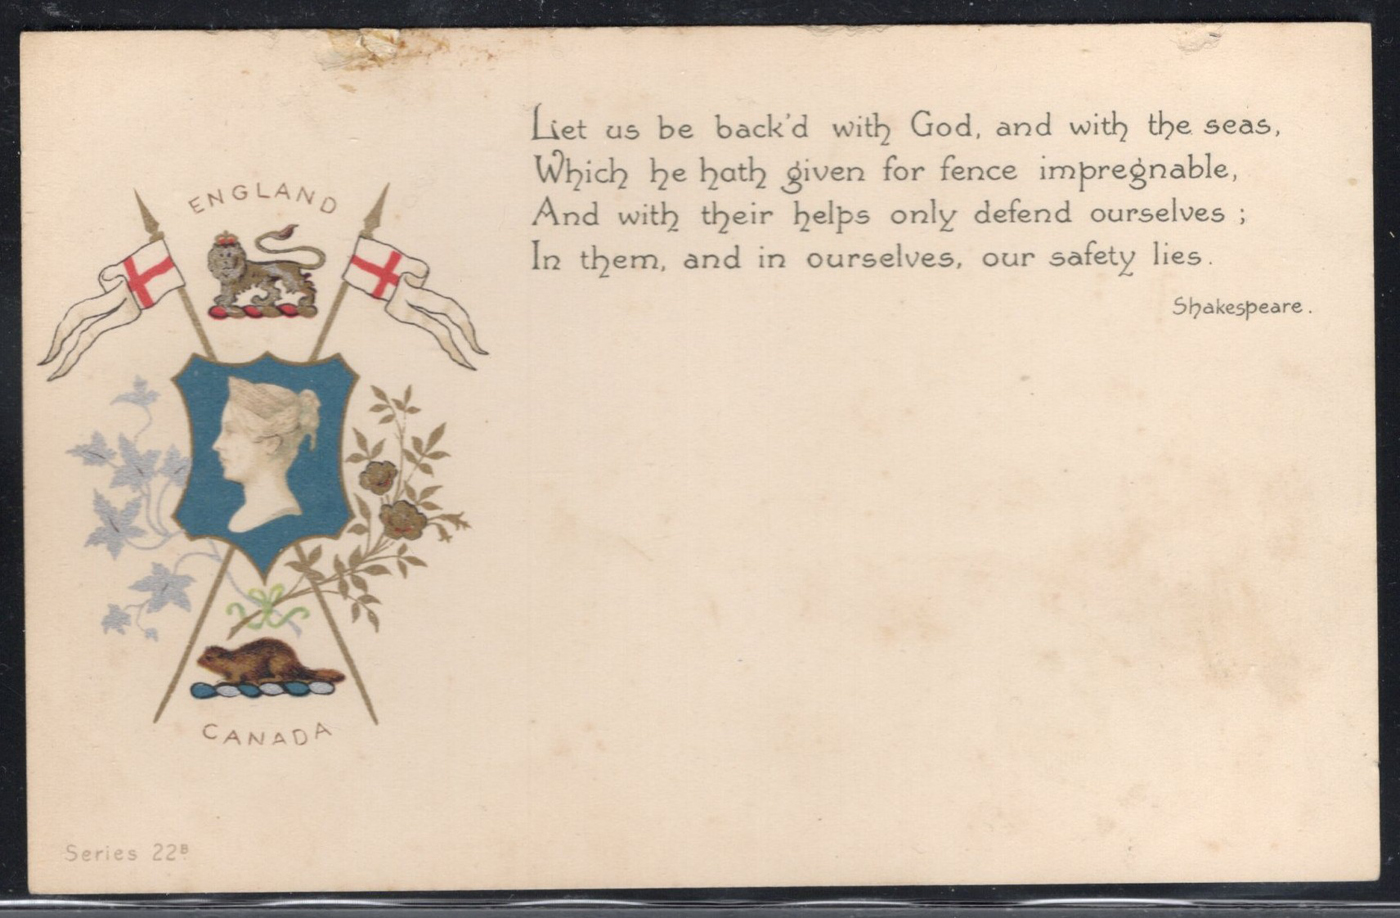 ENGLAND
Let us be back'd with God, and with the seas,
Which he hath given for fence impregnable,
And with their helps only defend ourselves ;
In them, and in ourselves, our safety lies.
Shakespeare.
CANADA
Series 22B